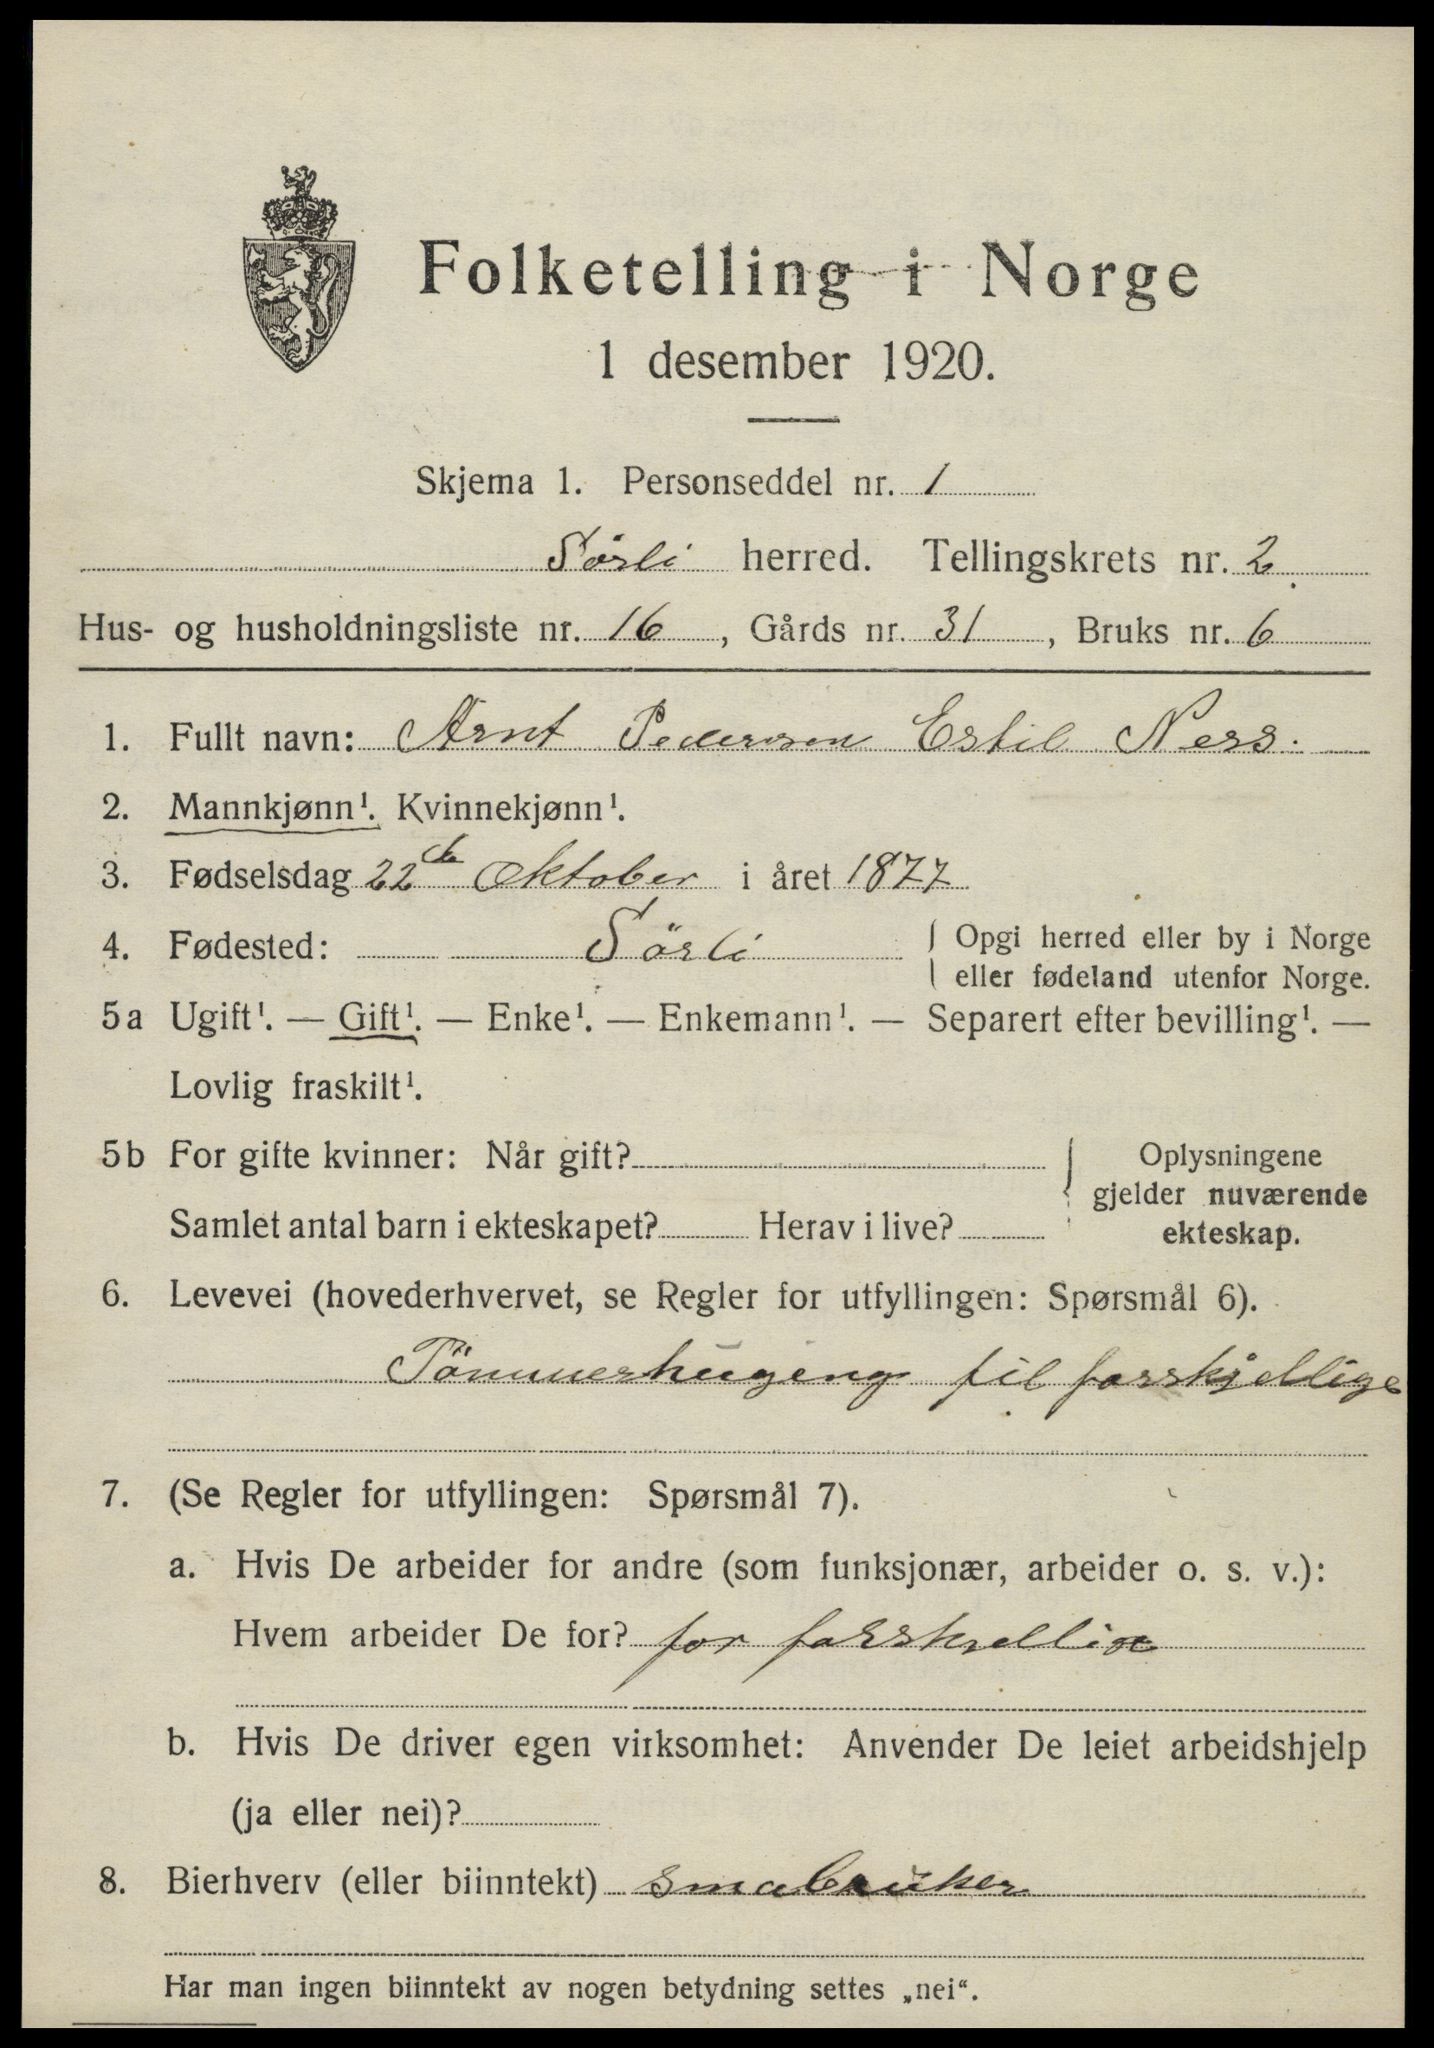 Folketelling i Norge
1 desember 1920.
Skjema 1. Personseddel nr. 1
Sörli herred. Tellingskrets nr. 2
Hus- og husholdningsliste nr. 16, Gårds nr. 31, Bruks nr. 6
1. Fullt navn: Arnt Pedersen Estil Ness.
2. Mannkjønn¹. Kvinnekjønn¹.
3. Fødselsdag 22de Oktober i året 1877
4. Fødested: Sörli { Opgi herred eller by i Norge
eller fødeland utenfor Norge.
5a Ugift¹. — Gift¹. — Enke¹. — Enkemann¹. — Separert efter bevilling¹. —
Lovlig fraskilt¹.
5b For gifte kvinner: Når gift? { Oplysningene
gjelder nuværende
Samlet antal barn i ekteskapet? Herav i live? ekteskap.
6. Levevei (hovederhvervet, se Regler for utfyllingen: Spørsmål 6).
Tömmerhugeng til forskjellige
7. (Se Regler for utfyllingen: Spørsmål 7).
a. Hvis De arbeider for andre (som funksjonær, arbeider o. s. v.):
Hvem arbeider De for? for forskjellige
b. Hvis De driver egen virksomhet: Anvender De leiet arbeidshjelp
(ja eller nei)?
8. Bierhverv (eller biinntekt) smabruker
Har man ingen biinntekt av nogen betydning settes „nei“.